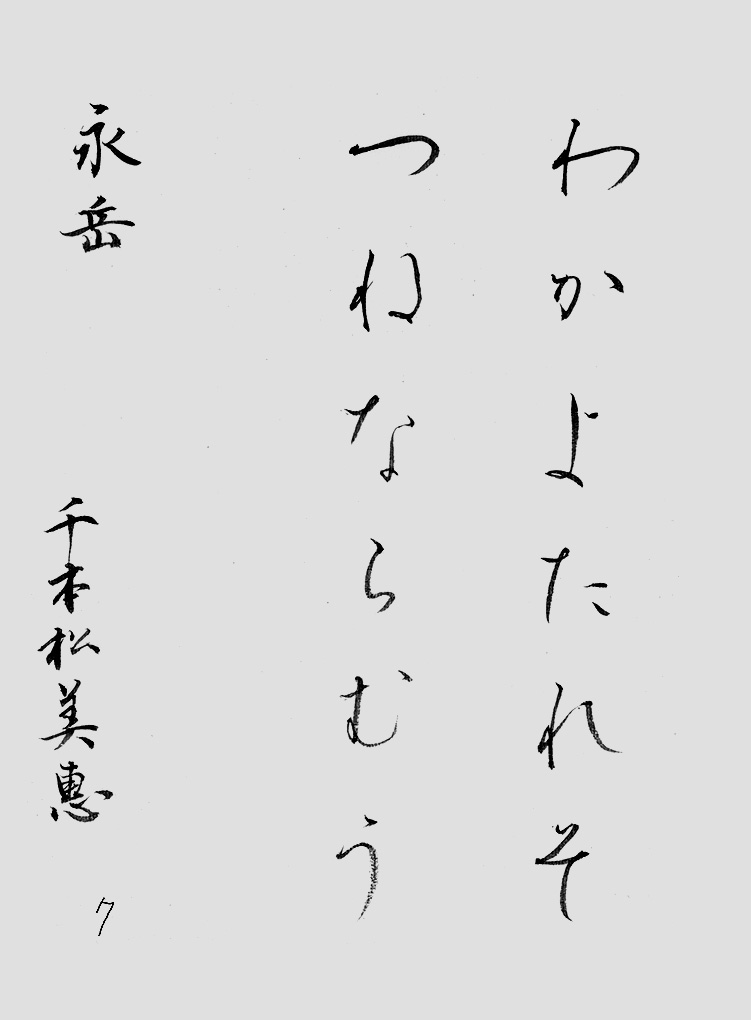 わかよたれそ
つねならむう
永岳
千本松美惠
7